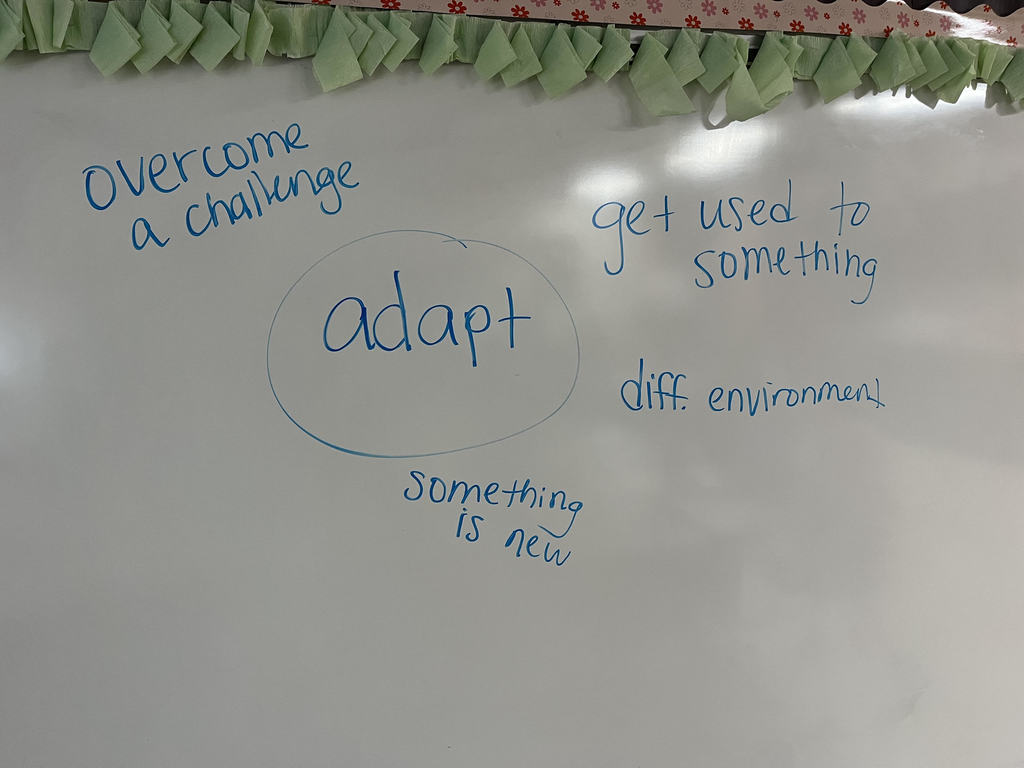 overcome
a challenge
get used to
something
adapt
diff. environment
something
is new